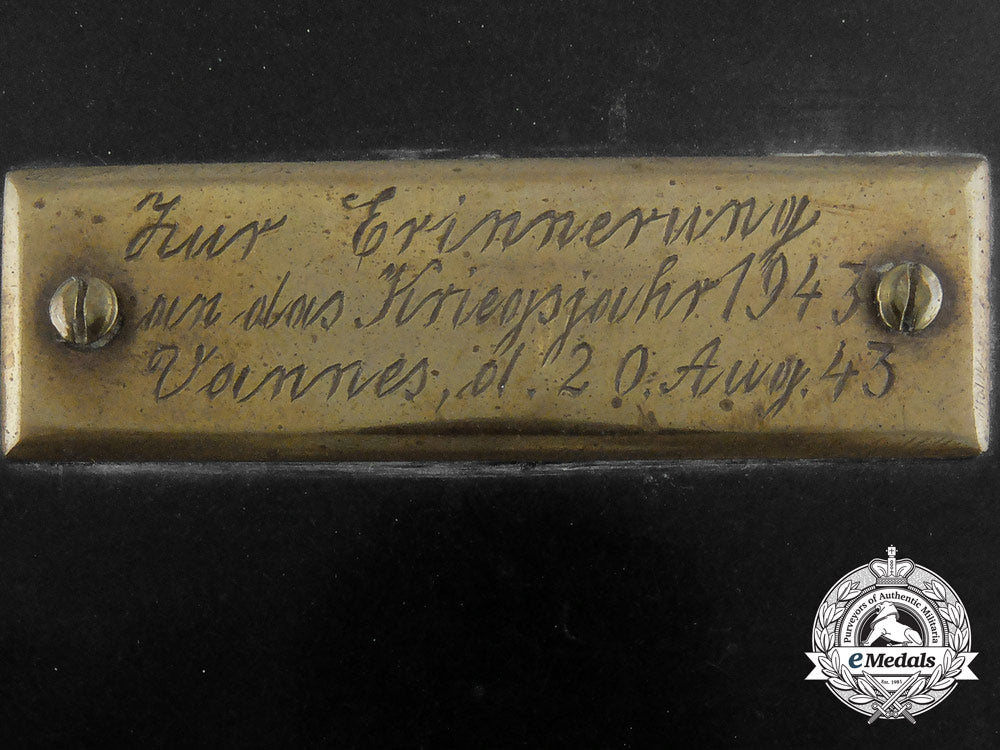 Zur Erinnerung
an das Kriegsjahr 1943
Vannes, d. 20. Aug. 43
Purveyors of Authentic Militaria
eMedals
Est. 1981